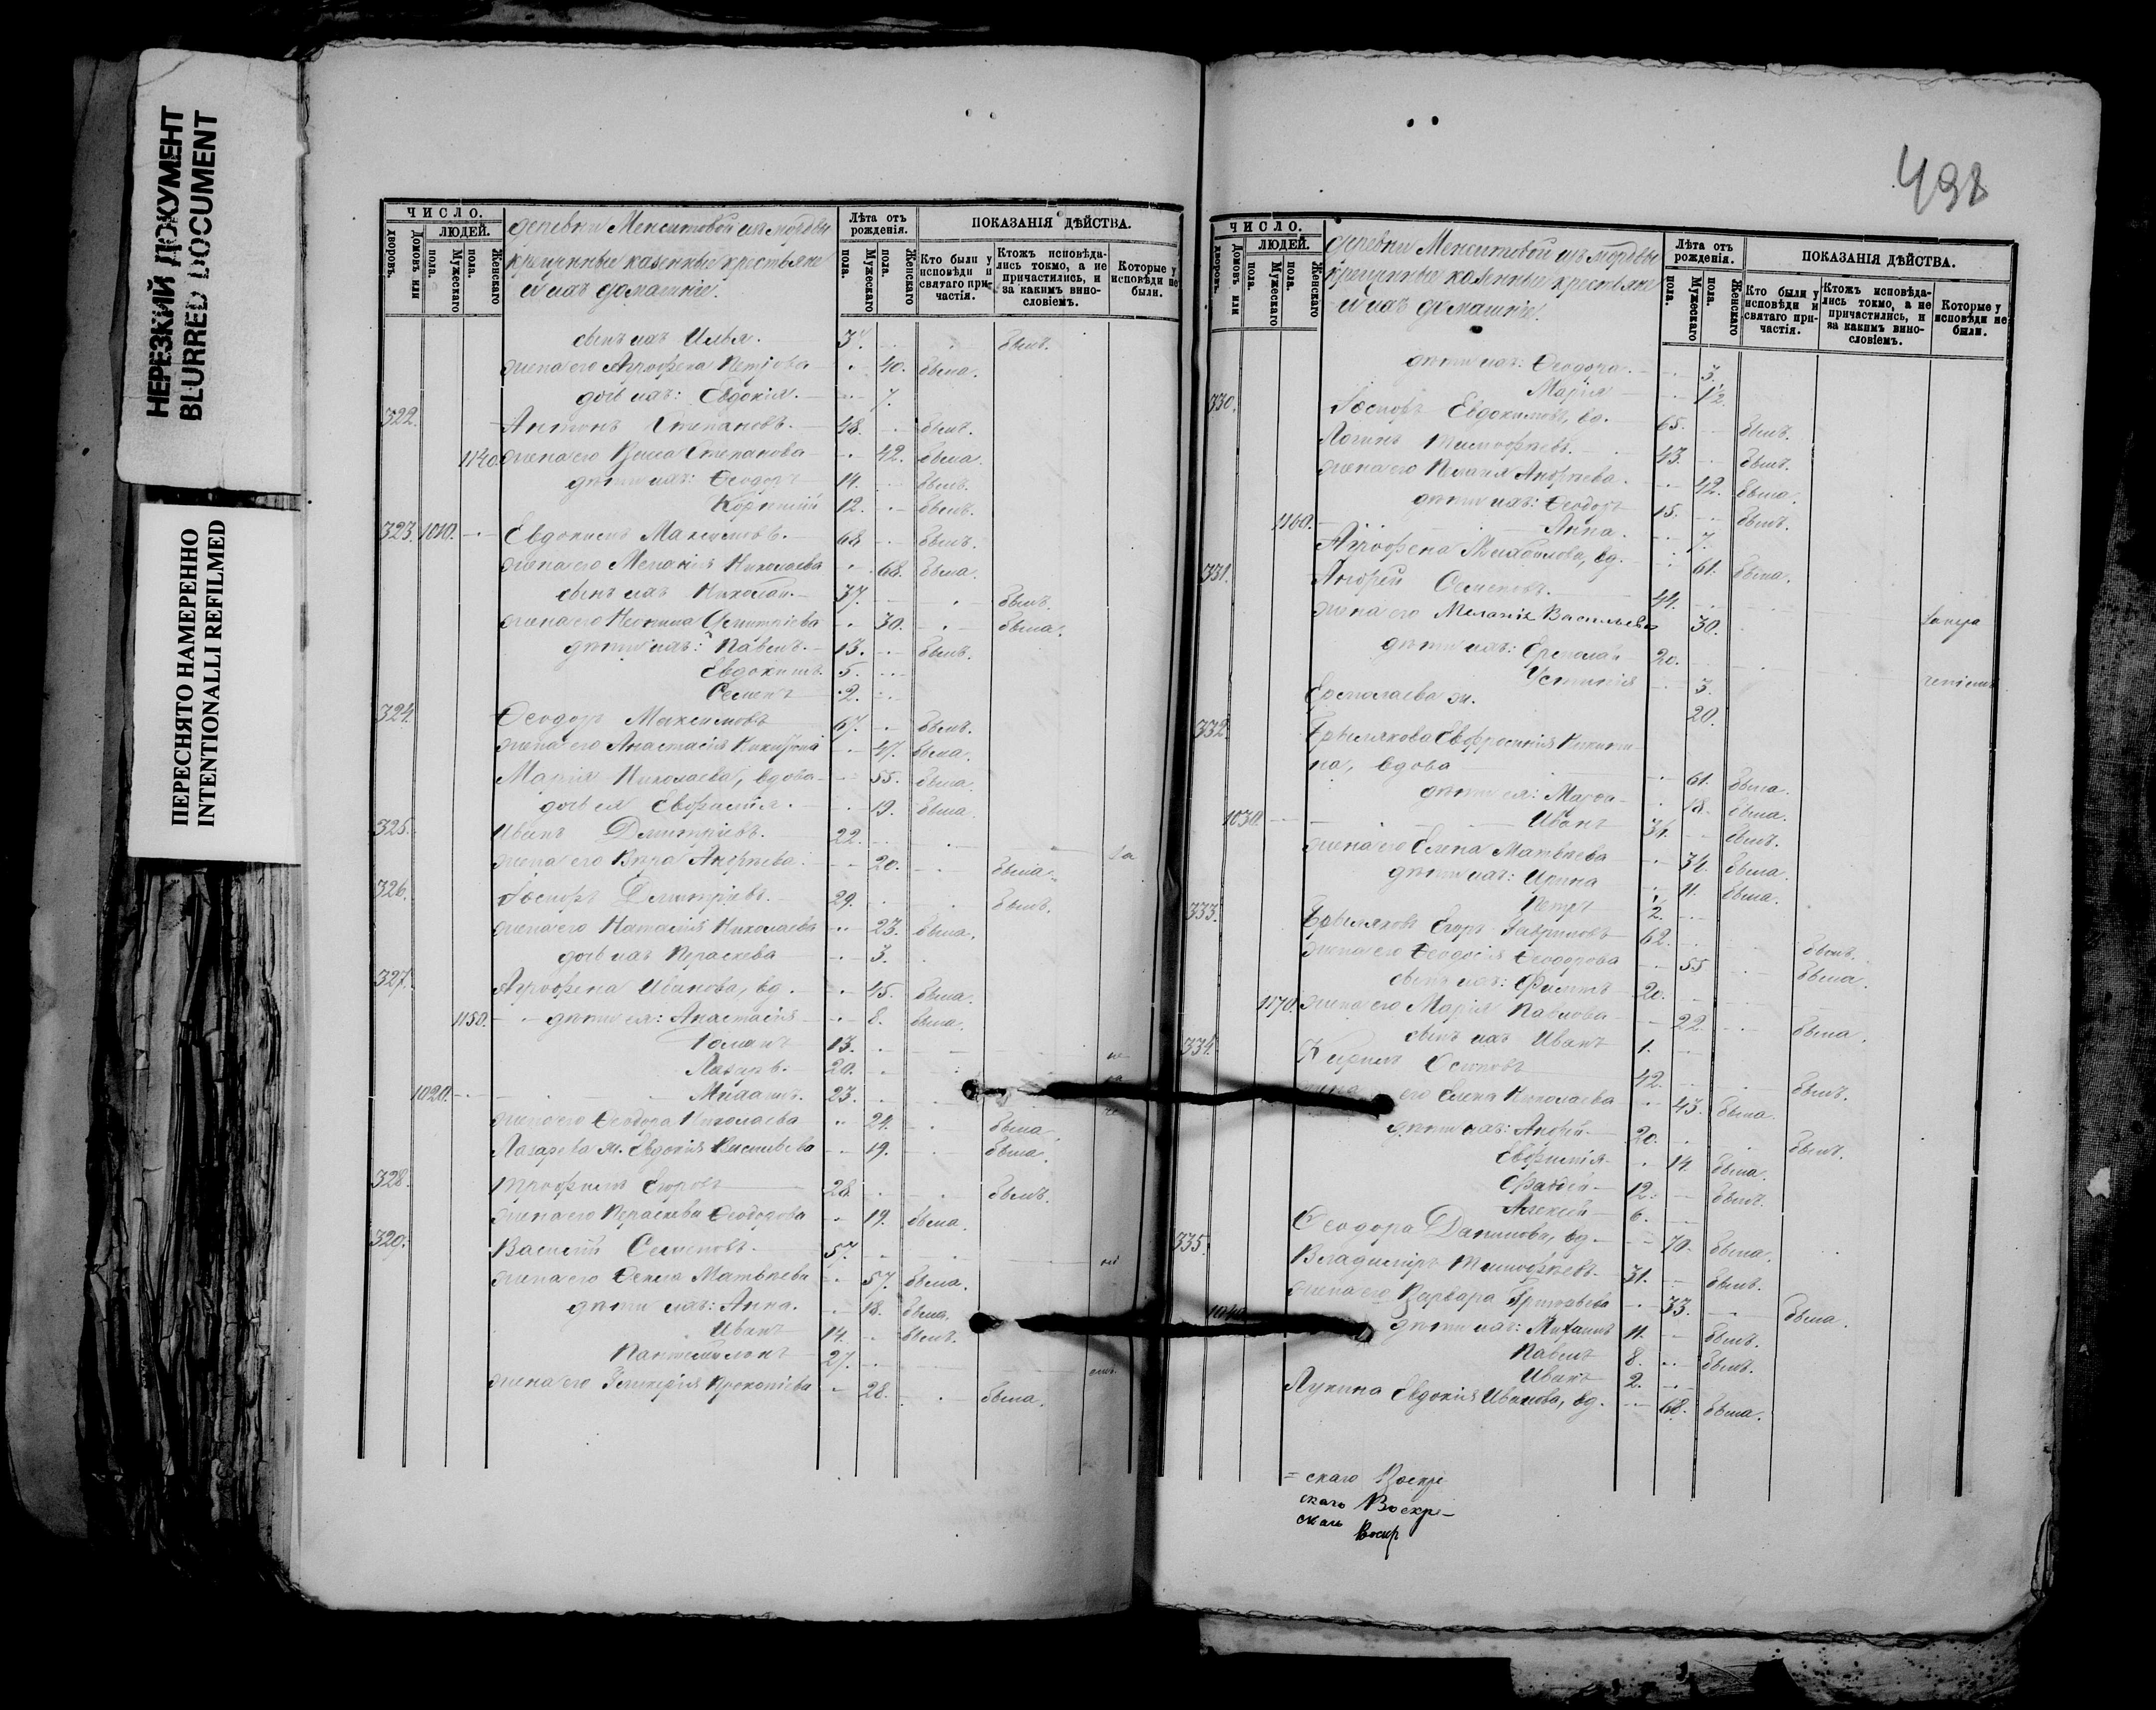 НЕРЕЗКИЙ ДОКУМЕНТ
BLURRED DOCUMENT
ПЕРЕСНЯТО НАМЕРЕННО
INTENTIONALLI REFILMED
ЧИСЛО.
ЛЮДЕЙ.
Домовъ или дворовъ.
Мужескаго пола.
Женскаго пола.
деревни Менситовой изъ мордвы
крещенные казенные крестьяне
и ихъ домашніе.
Лѣта отъ рожденія.
Мужескаго пола.
Женскаго пола.
ПОКАЗАНІЯ ДѢЙСТВА.
Кто были у исповѣди и святаго причастія.
Ктожъ исповѣдались токмо, а не причастились, и за какимъ винословіемъ.
Которые у исповѣди не были.
сынъ ихъ Илья. былъ.
жена его Агрофена Петрова 40. была.
дочь ихъ: Евдокія. 7.
322. Антонъ Степановъ. 48. былъ.
1140. жена его Васса Степанова 42. была.
дѣти ихъ: Ѳеодоръ 14. былъ.
Корнилій 12. былъ.
323. 1010. Евдокимъ Максимовъ. 68. былъ.
жена его Меланія Николаева 68. была.
сынъ ихъ Николай. 37. былъ.
жена его Неонила Димитріева 30. была.
дѣти ихъ: Павелъ. 13. былъ.
Евдокимъ. 5.
Семенъ 2.
324. Ѳеодоръ Максимовъ 67. былъ.
жена его Анастасія Никитина 47. была.
Марія Николаева, вдова 55. была.
дочь ея Евфимія. 19. была.
325. Иванъ Димитріевъ. 22.
жена его Вѣра Андреева. 20. была. за
326. Іосифъ Димитріевъ. 29. былъ.
жена его Наталія Николаева 23. была.
дочь ихъ Параскева 3.
327. Агрофена Иванова, вд. 45. была.
1150. дѣти ея: Анастасія 8. была.
Романъ 13.
Лазарь. 20.
1020. Михаилъ. 23.
жена его Ѳеодора Николаева 24. была.
Лазарева ж. Евдокія Васильева 19. была.
328. Трофимъ Егоровъ 28. былъ.
жена его Параскева Ѳеодорова 19. была.
320. Василій Семеновъ. 57.
жена его Ѳекла Матвѣева 57. была.
дѣти ихъ: Анна. 18. была.
Иванъ 14. былъ.
Пантелеимонъ 27.
жена его Гликерія Прокопіева 28. была.
498
ЧИСЛО.
ЛЮДЕЙ.
Домовъ или дворовъ.
Мужескаго пола.
Женскаго пола.
деревни Менситовой изъ мордвы
крещенные казенные крестьяне
и ихъ домашніе.
Лѣта отъ рожденія.
Мужескаго пола.
Женскаго пола.
ПОКАЗАНІЯ ДѢЙСТВА.
Кто были у исповѣди и святаго причастія.
Ктожъ исповѣдались токмо, а не причастились, и за какимъ винословіемъ.
Которые у исповѣди не были.
дѣти ихъ: Ѳеодора. 3.
Марія 1/2.
330. Іосифъ Евдокимовъ, вд. 65. былъ.
Логинъ Тимофеевъ. 43. былъ.
жена его Пелагія Андреева. 42. была.
дѣти ихъ: Ѳеодоръ 15. былъ.
1160. Анна. 7.
Агрофена Михайлова, вд. 61. была.
331. Андрей Семеновъ. 44.
жена его Меланія Васильева 30.
дѣти ихъ: Ермолай 20.
Устинія 3.
Ермолаева ж. 20.
332. Евфросинія Никитина, вдова 61. была.
дѣти ея: Марѳа 18. была.
1030. Иванъ 34. былъ.
жена его Елена Матвѣева 34. была.
дѣти ихъ: Ирина 11. была.
Петръ 1/2.
333. Егоръ Гавриловъ 62. былъ.
жена его Ѳеодосія Ѳеодорова 55 была.
сынъ ихъ: Филипъ 20.
1170. жена его Марія Павлова 22. была.
сынъ ихъ Иванъ 1.
334. Кирилъ Осиповъ 42. былъ.
жена его Елена Николаева 43. была.
дѣти ихъ: Андрей. 20. былъ.
Евфимія 14. была.
Фаддей 12. былъ.
Алексей 6.
Ѳеодора Данилова, вд. 70. была.
335. Владиміръ Тимофеевъ 31. былъ.
жена его Варвара Григорьева 33. была.
1040 дѣти ихъ: Михаилъ 11. былъ.
Павелъ 8. былъ.
Иванъ 2.
Лукина Евдокія Иванова, вд. 68. была.
= скаго Воскре
скаго Воскре-
скаго Воскр